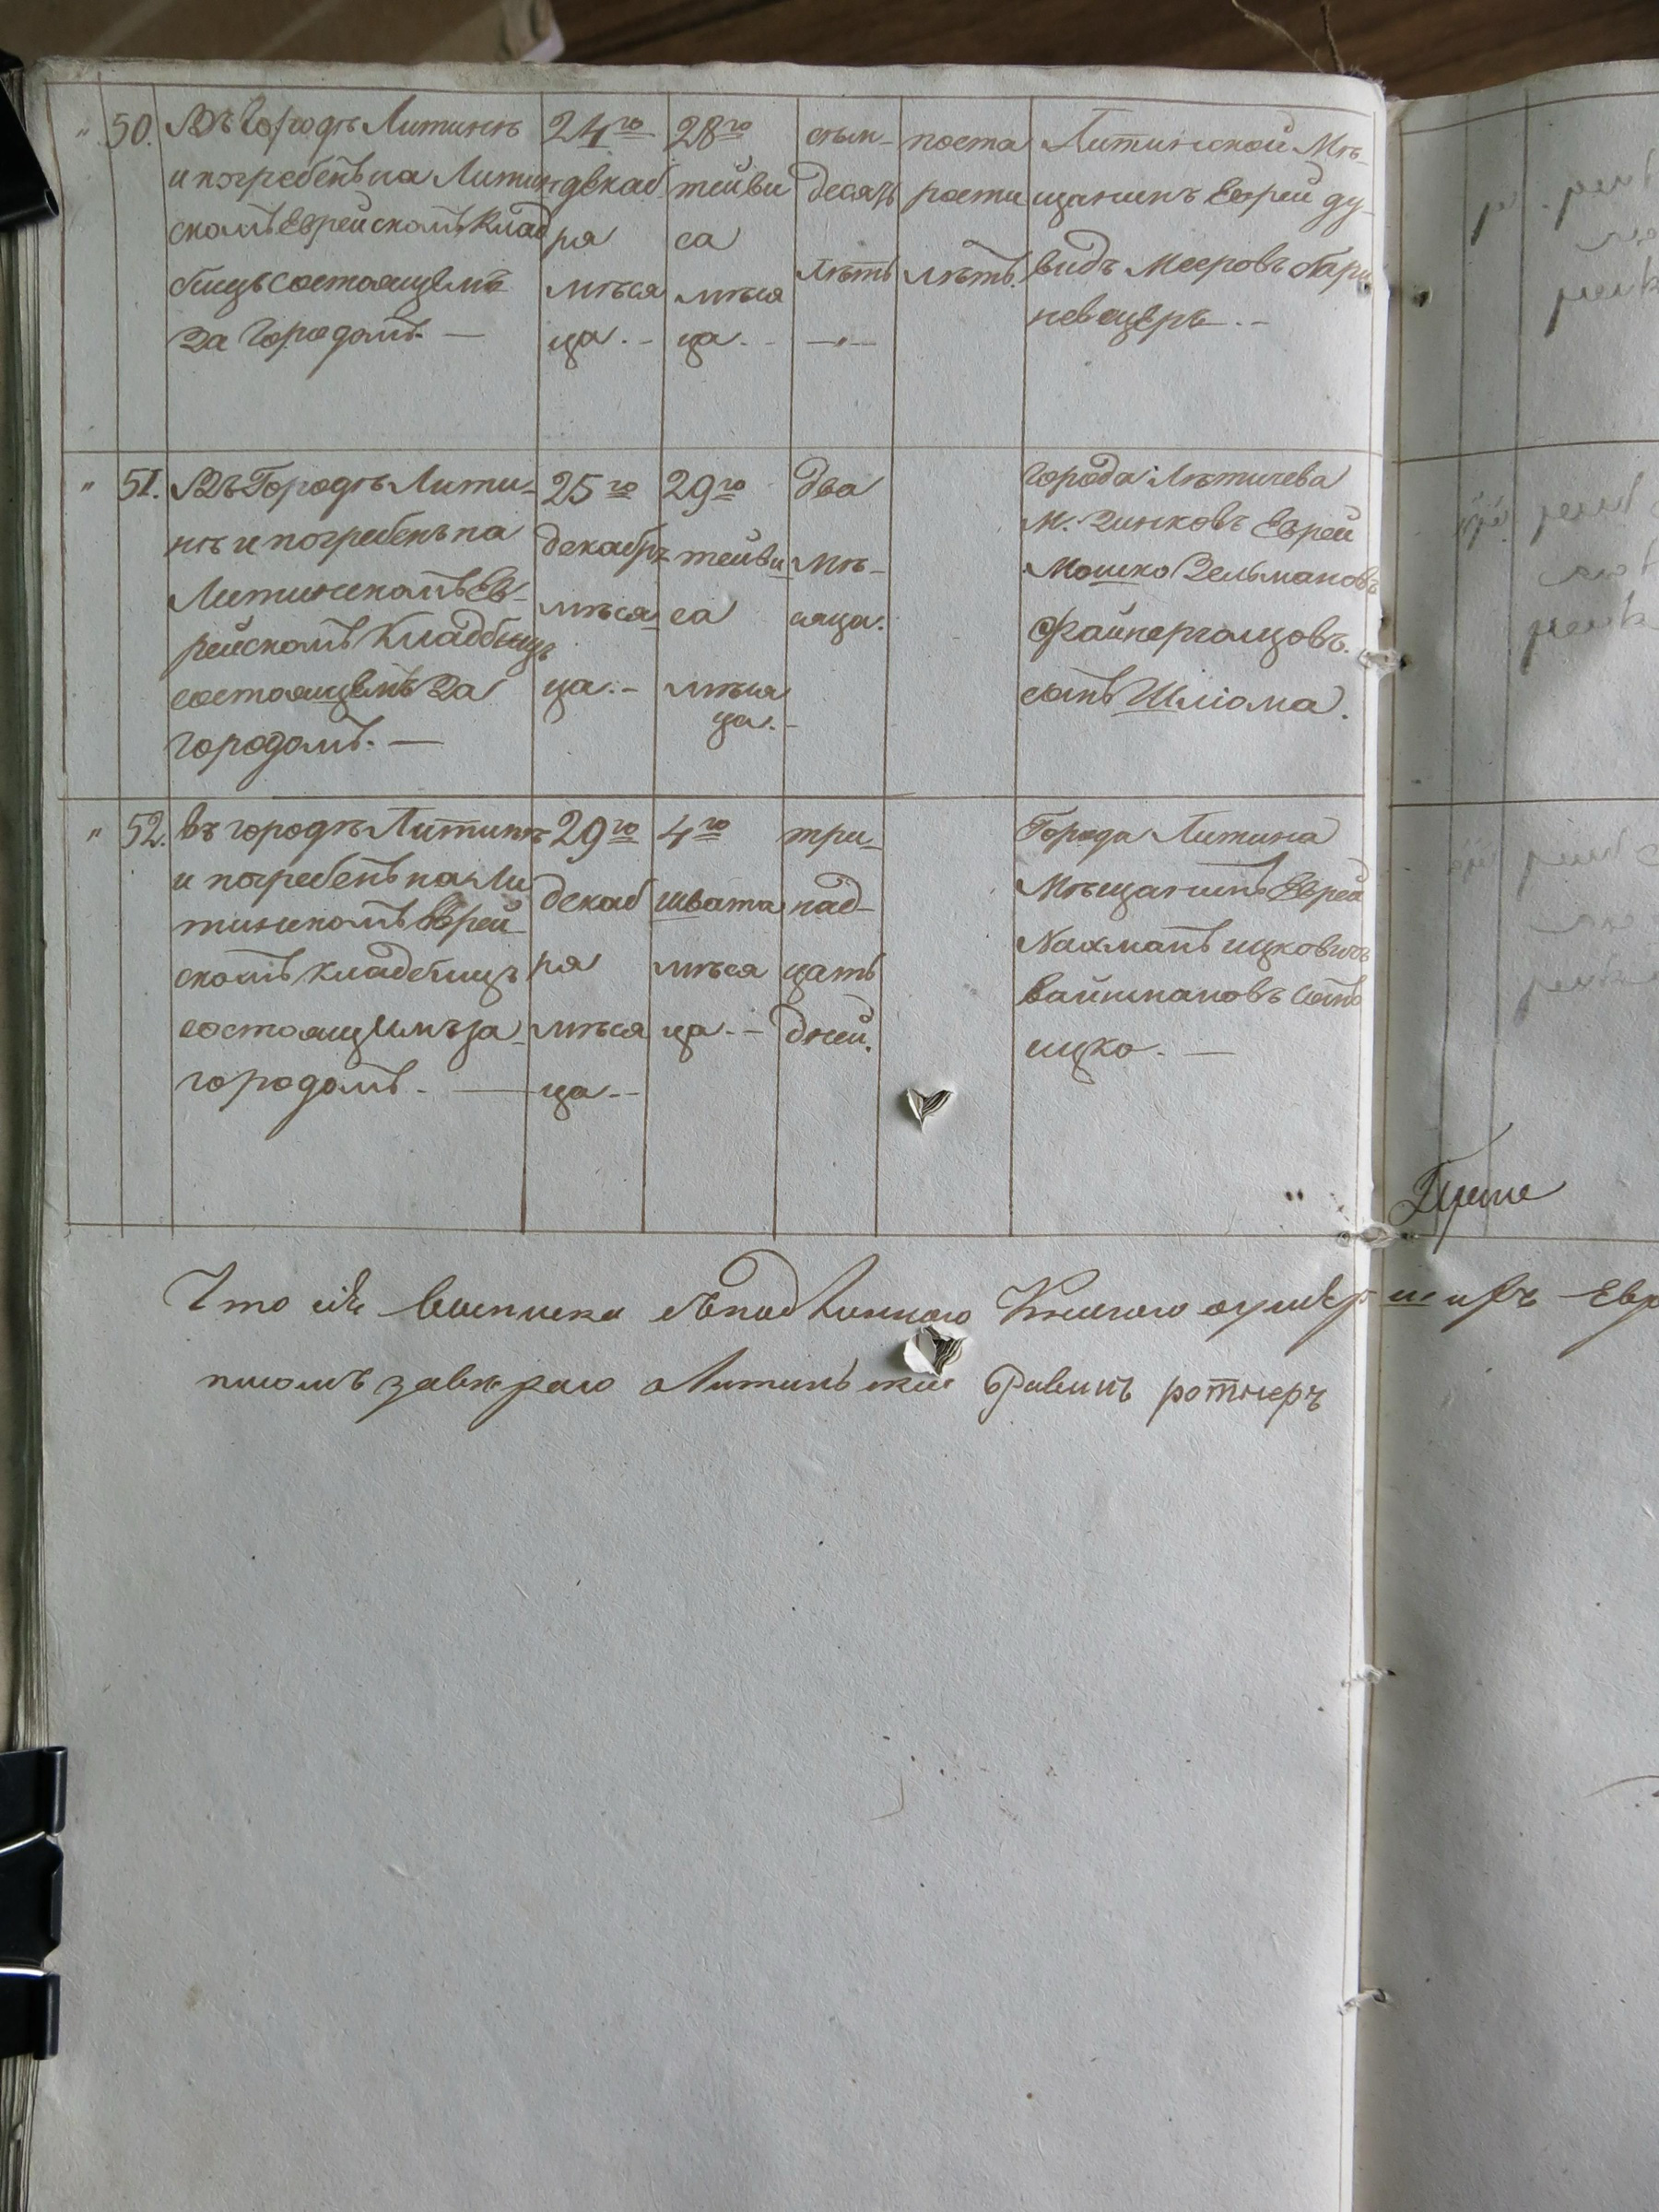 " 50. Въ Городѣ Литинѣ
и погребенъ на Литин
скомъ Еврейскомъ Клад
бищѣ состоящемъ
За Городомъ. —
24го
декаб
ря
мѣся
ца. -
28го
тейви
са
мѣся
ца. -
семь-
десять
лѣтъ
—"—
поста
рости
лѣтъ.
Литинской Мѣ-
щанинъ Еврей Ду-
видъ Мееровъ
" 51. Въ Городѣ Лити-
нѣ и погребенъ на
Литинскомъ Ев-
рейскомъ Кладбищѣ
состоящемъ За
городомъ. —
25го
декабр
мѣся
ца. -
29го
тейви
са
мѣся
ца. -
два
мѣ-
сяца.
Города Лѣтичева
М. Зинковъ Еврей
Мошко Зельмановъ
сынъ Шліома.
" 52. въ городѣ Литинѣ
и погребенъ на Ли
тинскомъ Еврей-
скомъ кладбищѣ
состоящимъ за
городомъ. —
29го
декаб
ря
мѣся
ца --
4го
Швата
мѣся
ца. -
три-
над-
цать
дней.
Города Литина
Мѣщанинъ Еврей
Нахманъ Ицковичъ
Вайнмановъ сынъ
Ицко. —
Что
выписка
завѣраю Литинскій Равинъ Ротнеръ